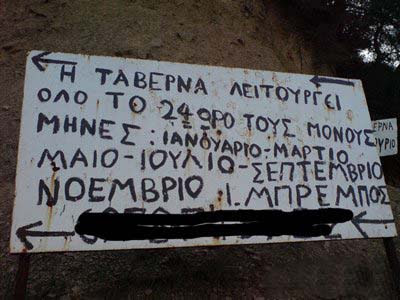 Η ΤΑΒΕΡΝΑ ΛΕΙΤΟΥΡΓΕΙ
ΟΛΟ ΤΟ 24ΩΡΟ ΤΟΥΣ ΜΟΝΟΥΣ
ΜΗΝΕΣ: ΙΑΝΟΥΑΡΙΟ-ΜΑΡΤΙΟ
ΜΑΙΟ-ΙΟΥΛΙΟ-ΣΕΠΤΕΜΒΡΙΟ
ΝΟΕΜΒΡΙΟ Ι.ΜΠΡΕΜΠΟΣ